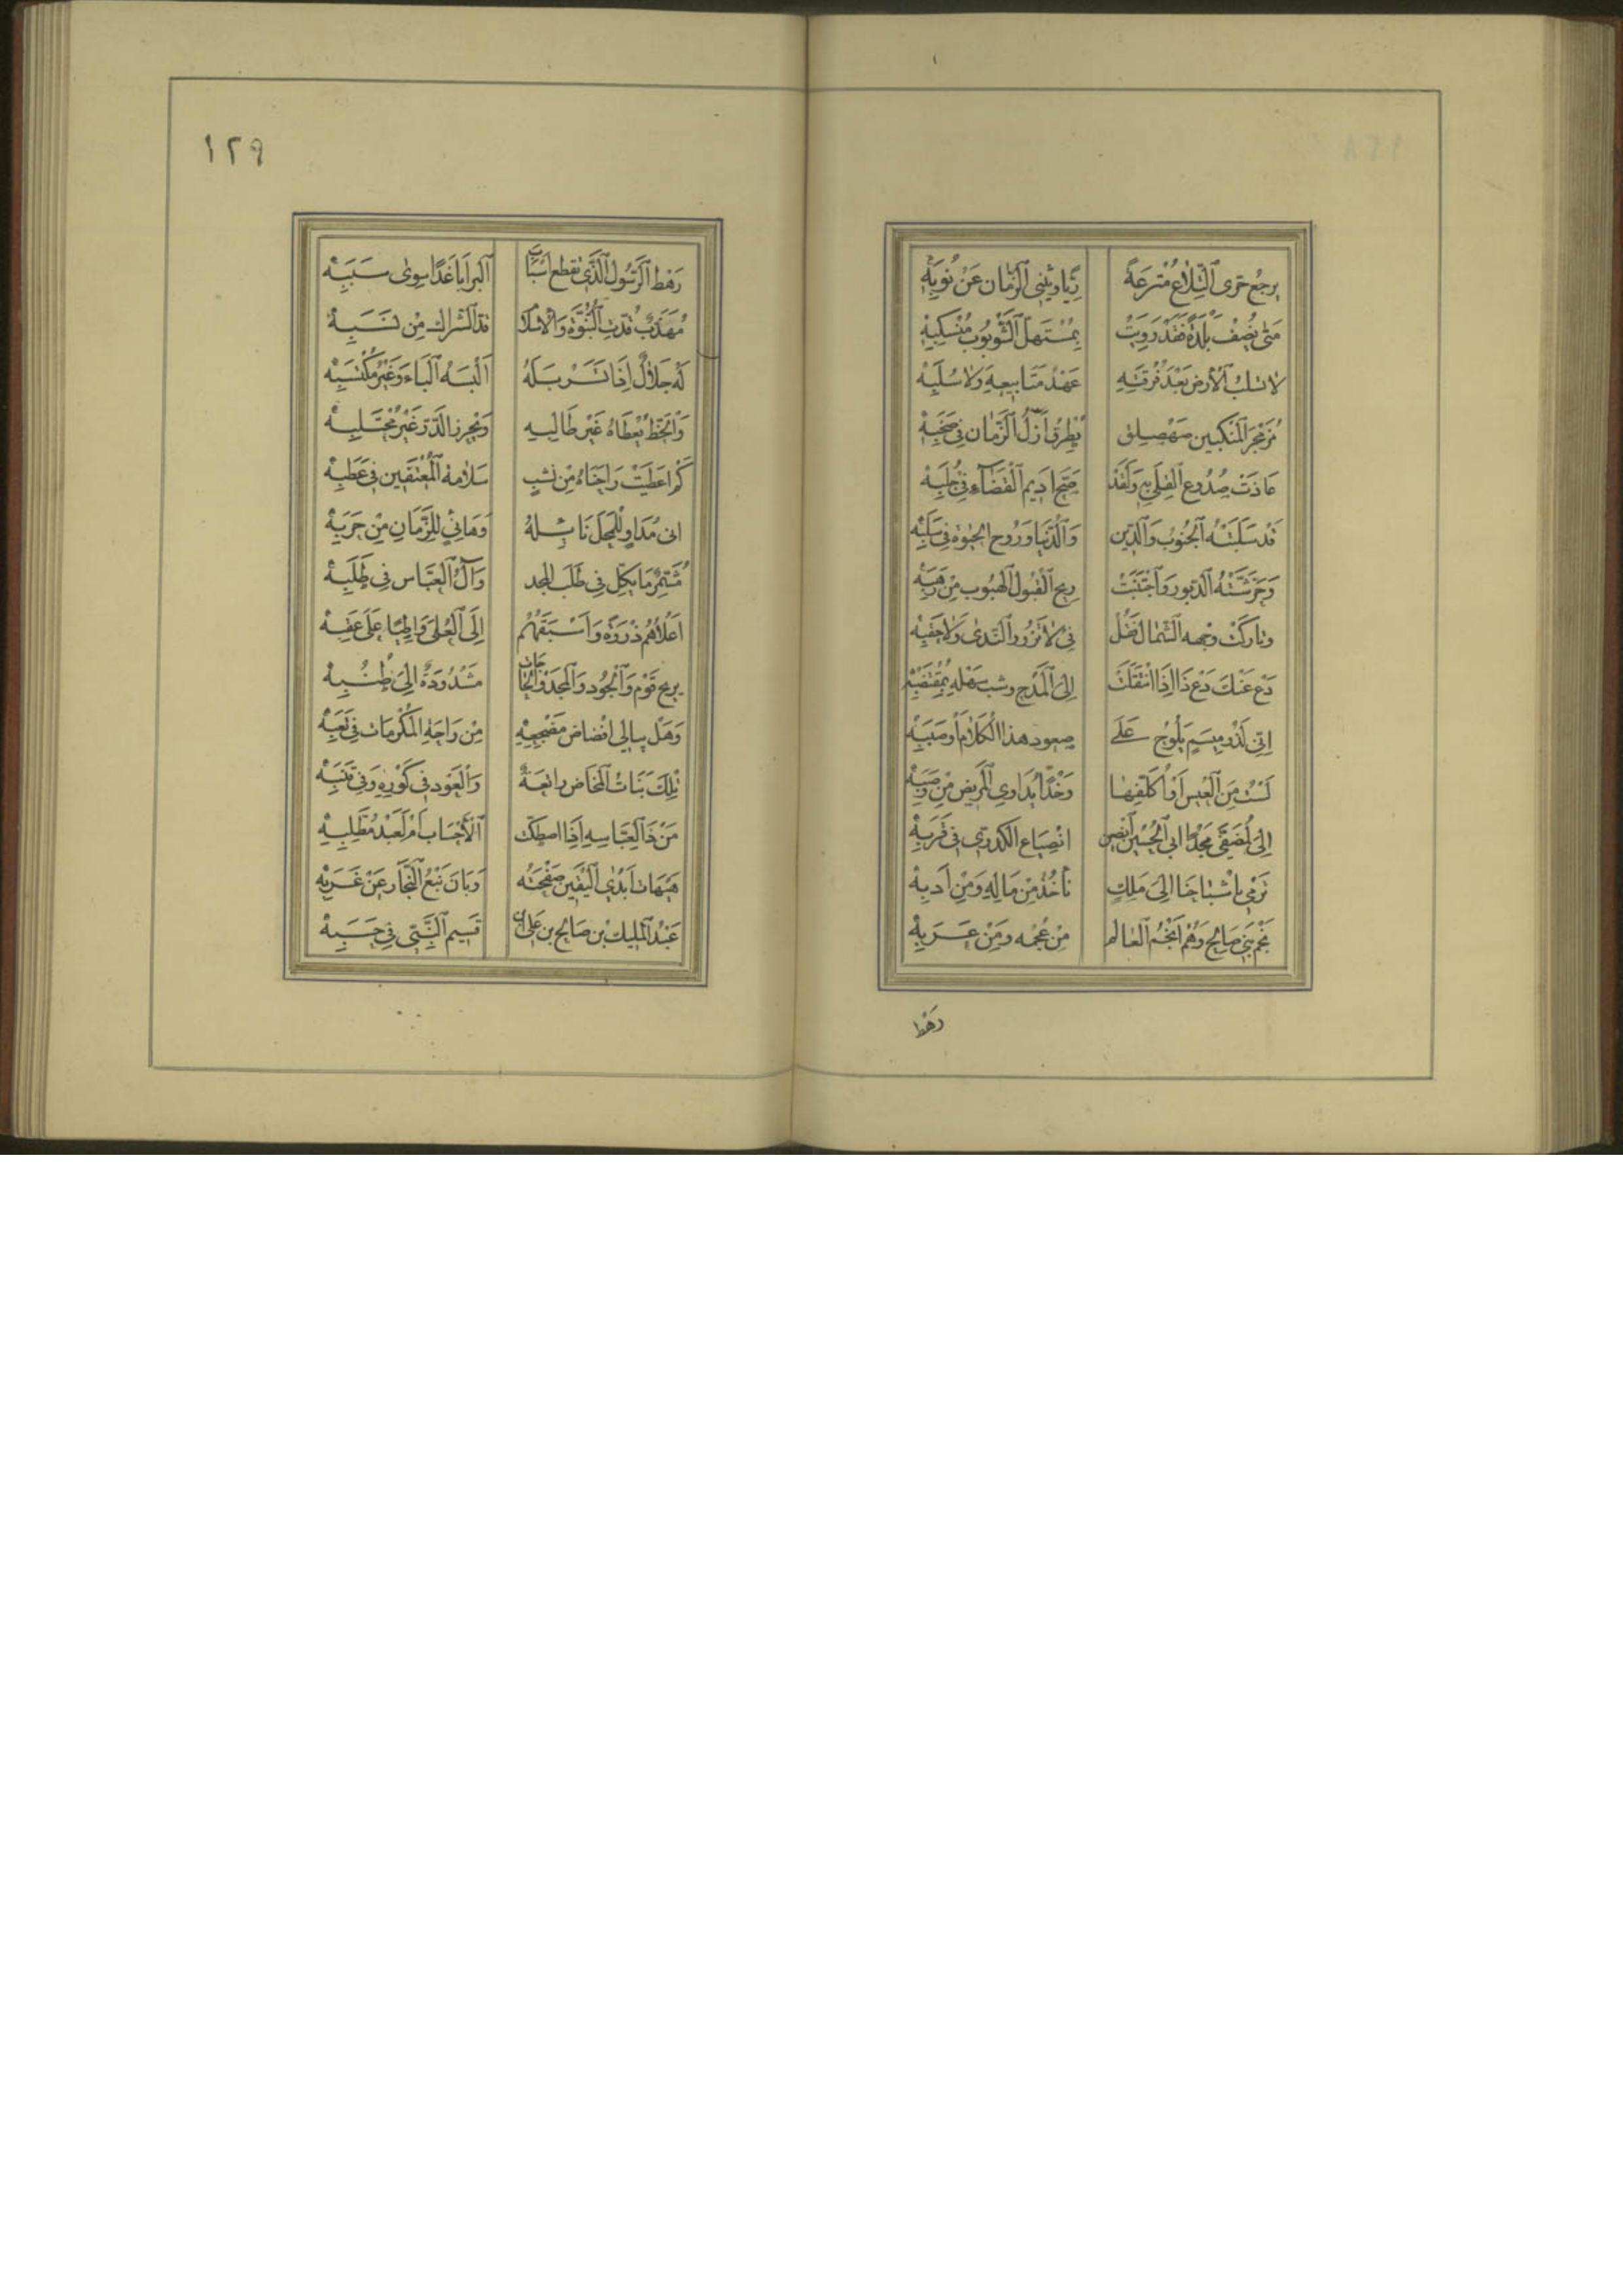 يرجع حرى التلاع مترعة ريا ويثنى الزمان عن نوبه
متى يضف بلدة فقد رويت بمستهل الشوبوب منسكبه
لا تسلب الأرض بعد فرقته عهد متابيعه ولا سلبه
مزمجر المنكبين صهصلق يطرق أزل الزمان في صخبه
عاذت صدوع الفلى به ولقد صح اديم القضاء في جلبه
قد سلبته الجنوب والدين والدنيا وروح الحيوة في سلبه
وحرشته الدبور واجتنبت ريح القبول الهبوب من رهبه
وتاركت وجهه الشمال فقل في لا نزور الندى ولا حقبه
دع عنك دع ذا اذا انتقلت الى المدح وشب سهله بمقتضبه
اني لذو ميسم يلوح على صعود هذا الكلام أو صببه
لست من العيس أو أكلفها وخدا يداوى المريض من وصبه
الى المصفى مجدا ابى الحسين انصعن انصياع الكدرى في قربه
ترمي باشباحنا الى ملك نأخذ من ماله ومن أدبه
نجم بنى صالح وهم انجم العالم من عجمه ومن عربه
رهط
١٢٩
رهط الرسول الذي تقطع اسباب البرايا غدا سوى سببه
مهذب قدت النبوة والاسلام قد الشراك من نسبه
له جلال اذا تسربله البسه الباء وغير مكتسبه
والحظ يعطاه غير طالبه ويحرز الدر غير مجتلبه
كم اعطبت راحتاه من نشب سلامة المعتفين في عطبه
اى مداو للمحل نائله وهانئ للزمان من جربه
مشمر ما يكل في طلب المجد وآل العباس في طلبه
اعلاهم ذروة واسبقهم الى العلى واطيا على عقبه
يريح قوم والجود والمجد والحاجات مشدودة الى طنبه
وهل يبالى اقضاض مضجعه من راحة المكرمات في تعبه
تلك بنات المخاض راتعة والعود في كوره وفي قتبه
من ذا العباسه اذا اصطك الأحساب أم لعبد مطلبه
هيهات ابدى اليقين صفحته وبان نبع النجار عن غربه
عبد المليك بن صالح بن على بن قسيم النبي في حسبه